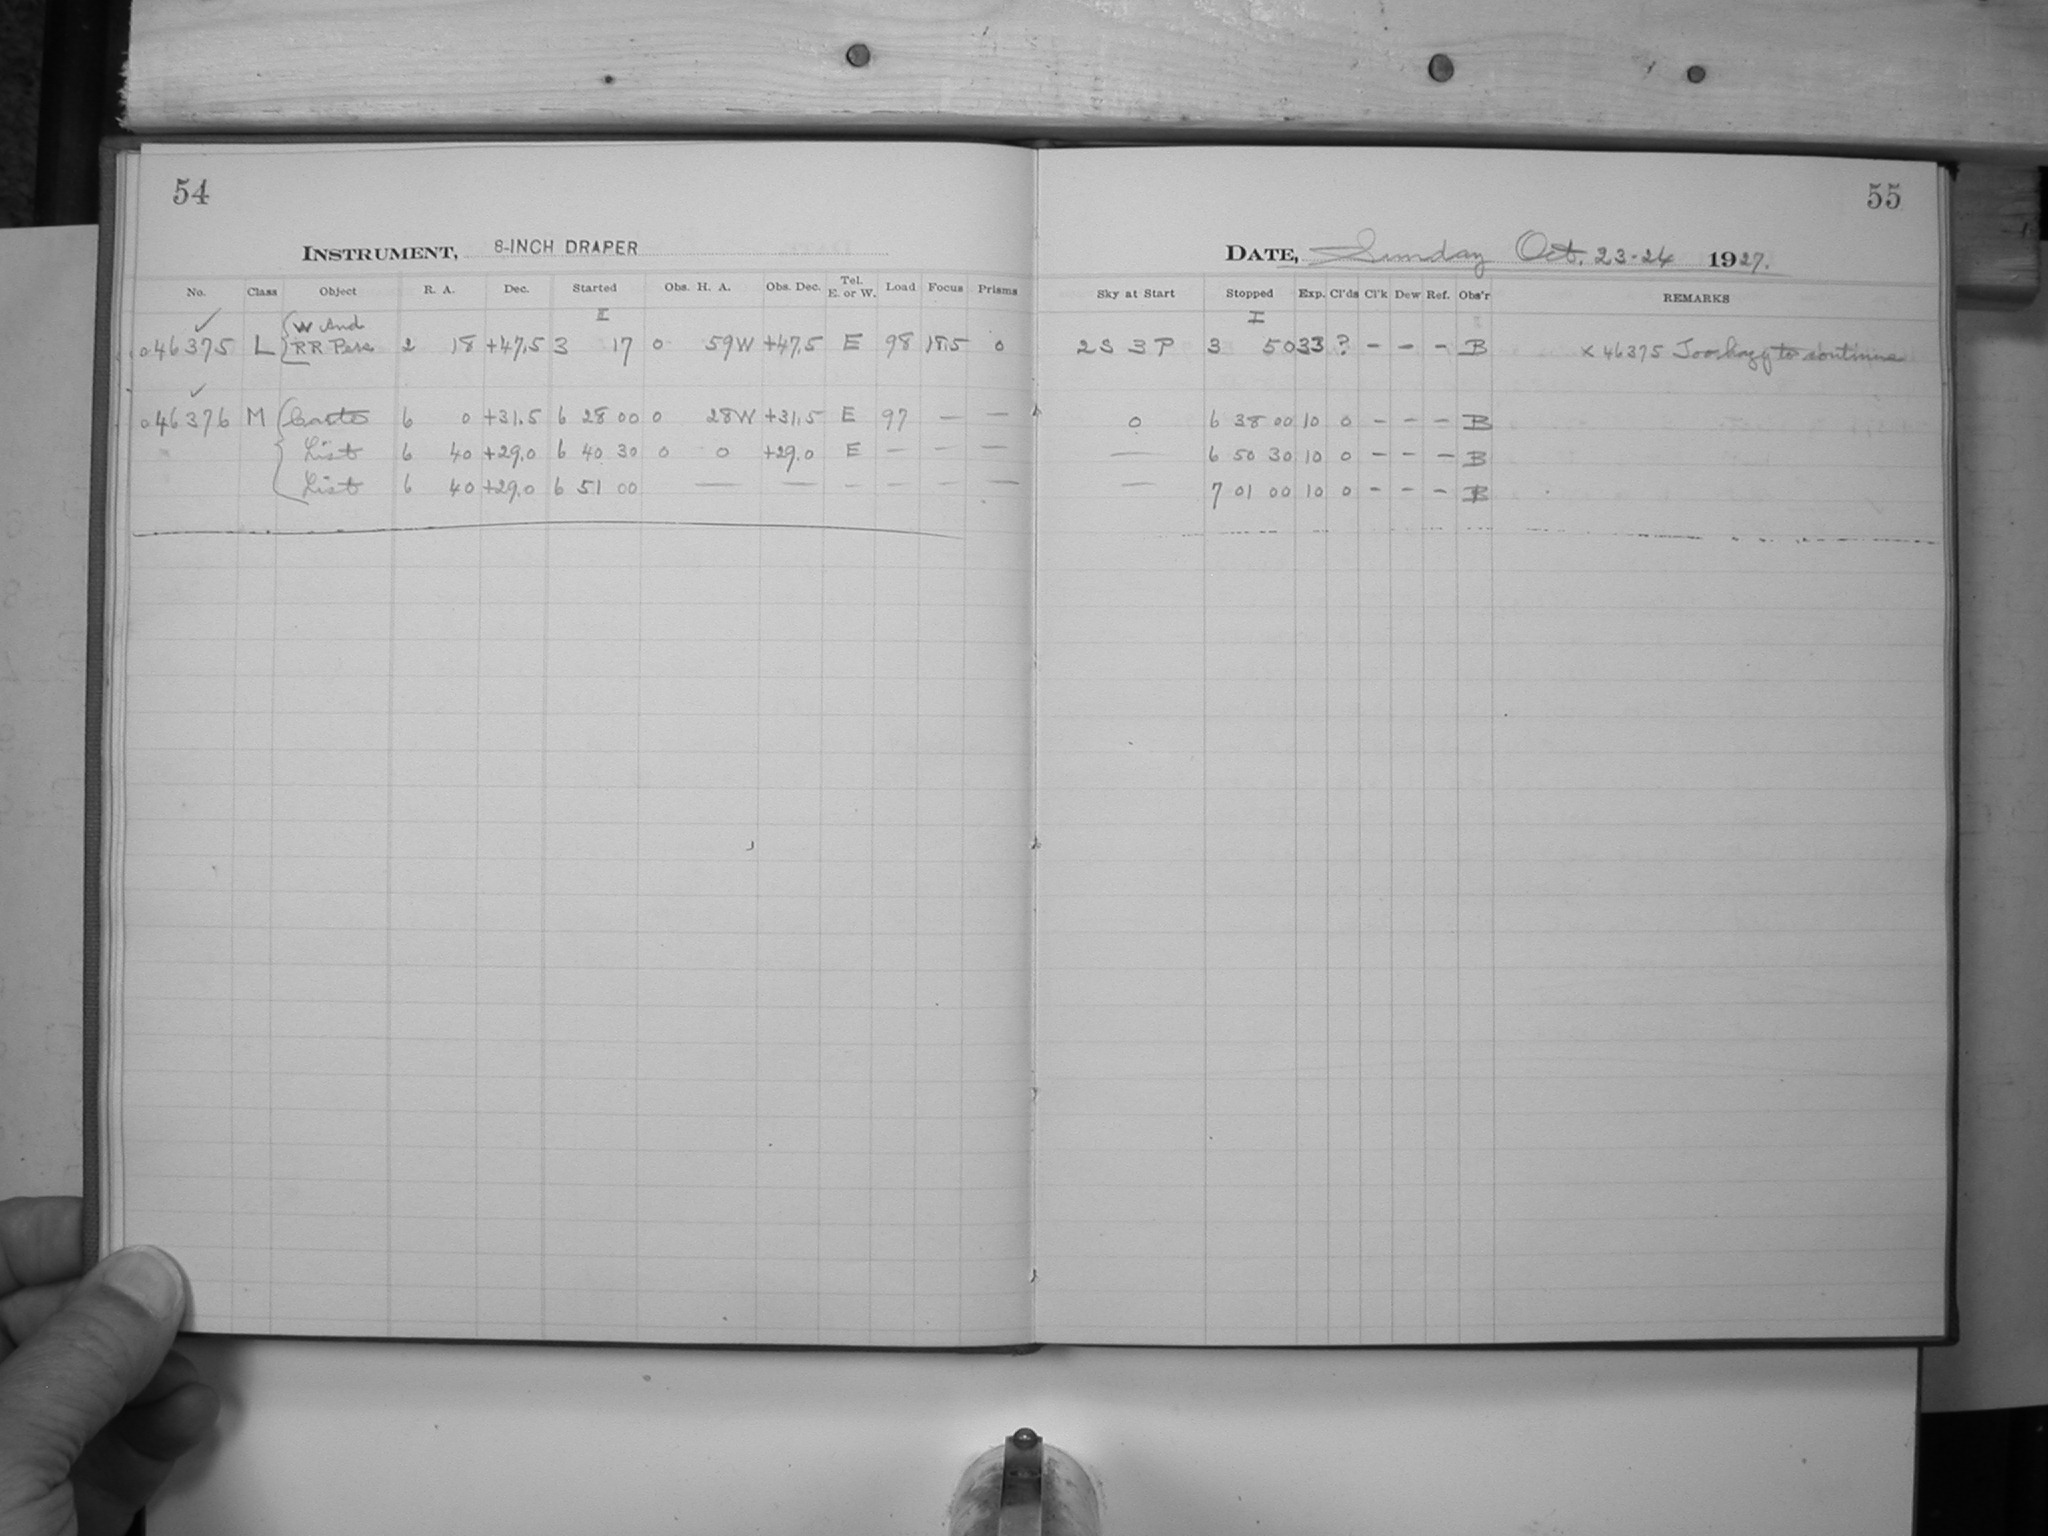 54
INSTRUMENT, 8-INCH DRAPER
No. Class Object R. A. Dec. Started Obs. H. A. Obs. Dec. Tel. E. or W. Load Focus Prisms
W And
046375 L RR Pers 2 18 +47.5 3 17 0 59W +47.5 E 98 18.5 0
046376 M 6 0 +31.5 6 28 00 0 28W +31.5 E 97 — —
List 6 40 +29.0 6 40 30 0 0 +29.0 E — — —
List 6 40 +29.0 6 51 00 — — — — — —
55
DATE, Sunday Oct. 23-24 1927.
Sky at Start Stopped Exp. Cl'ds Cl'k Dew Ref. Obs'r REMARKS
I
2S 3P 3 50 33 ? – – – B x 46375 Too hazy to continue
0 6 38 00 10 0 – – – B
— 6 50 30 10 0 – – – B
— 7 01 00 10 0 – – – B